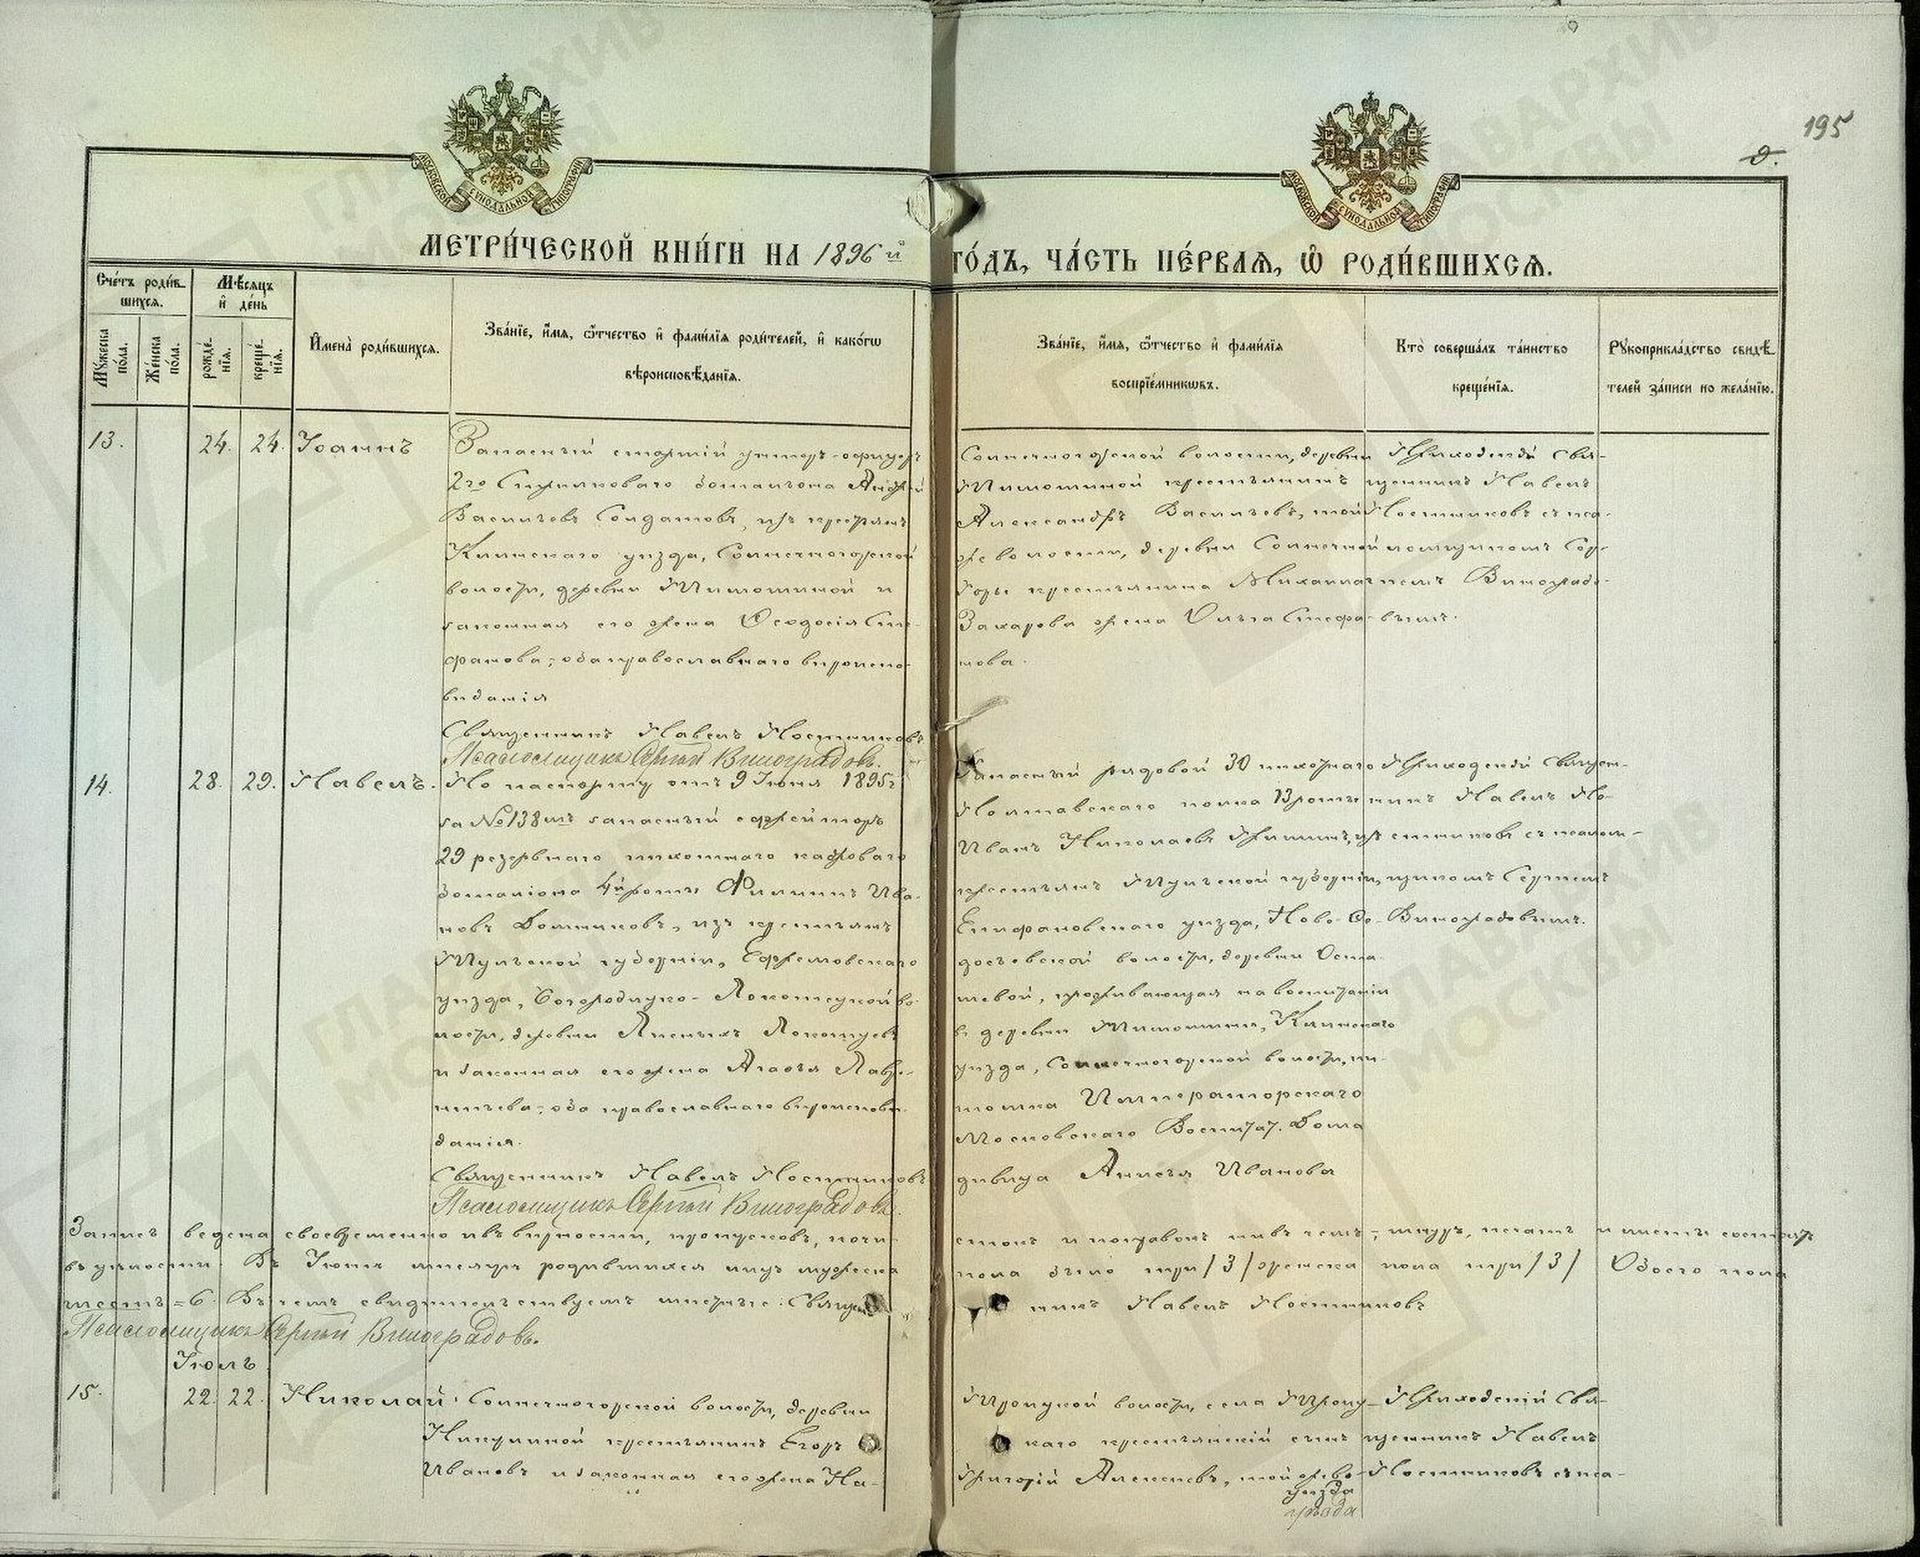 195
МОСКОВСКОЙ СѴНОДАЛЬНОЙ ТИПОГРАФІИ
МОСКОВСКОЙ СѴНОДАЛЬНОЙ ТИПОГРАФІИ
МЕТРИ́ЧЕСКОЙ КНИ́ГИ НА 1896й ГО́ДЪ, ЧА́СТЬ ПЕ́РВАѦ, Ѡ РОДИ́ВШИХСѦ.
Сче́тъ роди́в
шихся.
Мѣ́сяцъ
и де́нь
Мꙋ́жеска по́ла.
Же́нска по́ла.
рожде́нїя.
креще́нїя.
Имена̀ роди́вшихся.
Зва́нїе, и́мя, ѻ́тчество и фами́лїя роди́телей, и како́гѡ
вѣроисповѣ́данїя.
Зва́нїе, и́мя, ѻ́тчество и фами́лїя
воспрїе́мникѡвъ.
Кто̀ соверша́лъ та́инство
креще́нїя.
Рꙋкоприкла́дство свидѣ́
телей за́писи по жела́нїю.
13. 24. 24. Іоаннъ
Запасный старшій унтеръ-офицеръ
2го Стрѣлковаго баталіона Андрей
Васильевъ Солдатовъ, изъ крестьянъ
Клинскаго уѣзда, Солнечногорской
волости, деревни Тимоѳиной и
законная его жена Ѳеодосія Сте-
фанова; оба православнаго вѣроиспо-
вѣданія
Священникъ Павелъ Постниковъ
Псаломщикъ Сергѣй Виноградовъ.
Солнечногорской волости, деревни
крестьянинъ
Александръ Васильевъ, той
же волости, деревни Солнечной
Горы крестьянина Михаила
Захарова жена Ольга Стефа-
нова.
Приходскій Свя-
щенникъ Павелъ
Постниковъ съ пса-
ломщикомъ Сер-
гѣемъ Виноградо-
вымъ.
14. 28. 29. Павелъ.
По паспорту отъ 9 Іюня 1895г
за №138мъ запасный ефрейторъ
29 резервнаго пѣхотнаго кадроваго
баталіона 4й роты Филиппъ Ива-
новъ изъ крестьянъ
Тульской губерніи, Ефремовскаго
уѣзда, Богородицко-Локотецкой во-
лости, деревни
и законная его жена Агаѳья Лавре-
нтьева; оба православнаго вѣроисповѣ-
данія.
Священникъ Павелъ Постниковъ
Псаломщикъ Сергѣй Виноградовъ.
Запасный рядовой 30 пѣхотнаго
Полтавскаго полка 13 роты
Иванъ Николаевъ изъ
крестьянъ Тульской губерніи,
Епифановскаго уѣзда, Ново-Ѳе-
волости, деревни Оста-
шевой, проживающая на воспитаніи
въ деревни Клинскаго
уѣзда, Солнечногорской волости, пи-
томка Императорскаго
Московскаго Воспитат. Дома
дѣвица Анисья Иванова
Приходскій Священ-
никъ Павелъ По-
стниковъ съ псалом-
щикомъ Сергѣемъ
Виноградовымъ.
Запись ведена своевременно и въ вѣрности, пропусковъ, почи-
стокъ и поправокъ ни въ чемъ; шнуръ, печать и листы состоятъ
въ цѣлости. Въ Іюнѣ мѣсяцѣ родившихся лицъ мужеска
пола было три /3/ женска пола три /3/ Обоего пола
шесть =6. Въ чемъ свидѣтельствуемъ Священникъ Павелъ Постниковъ
Псаломщикъ Сергѣй Виноградовъ.
Іюль
15. 22. 22. Николай.
Солнечногорской волости, деревни
Никулиной крестьянинъ Егоръ
Ивановъ и законная его жена На-
Троицкой волости, села Троиц-
каго крестьянскій сынъ
Григорій Алексѣевъ, той же во-
уѣзда
уѣзда
Приходскій Свя-
щенникъ Павелъ
Постниковъ съ пса-